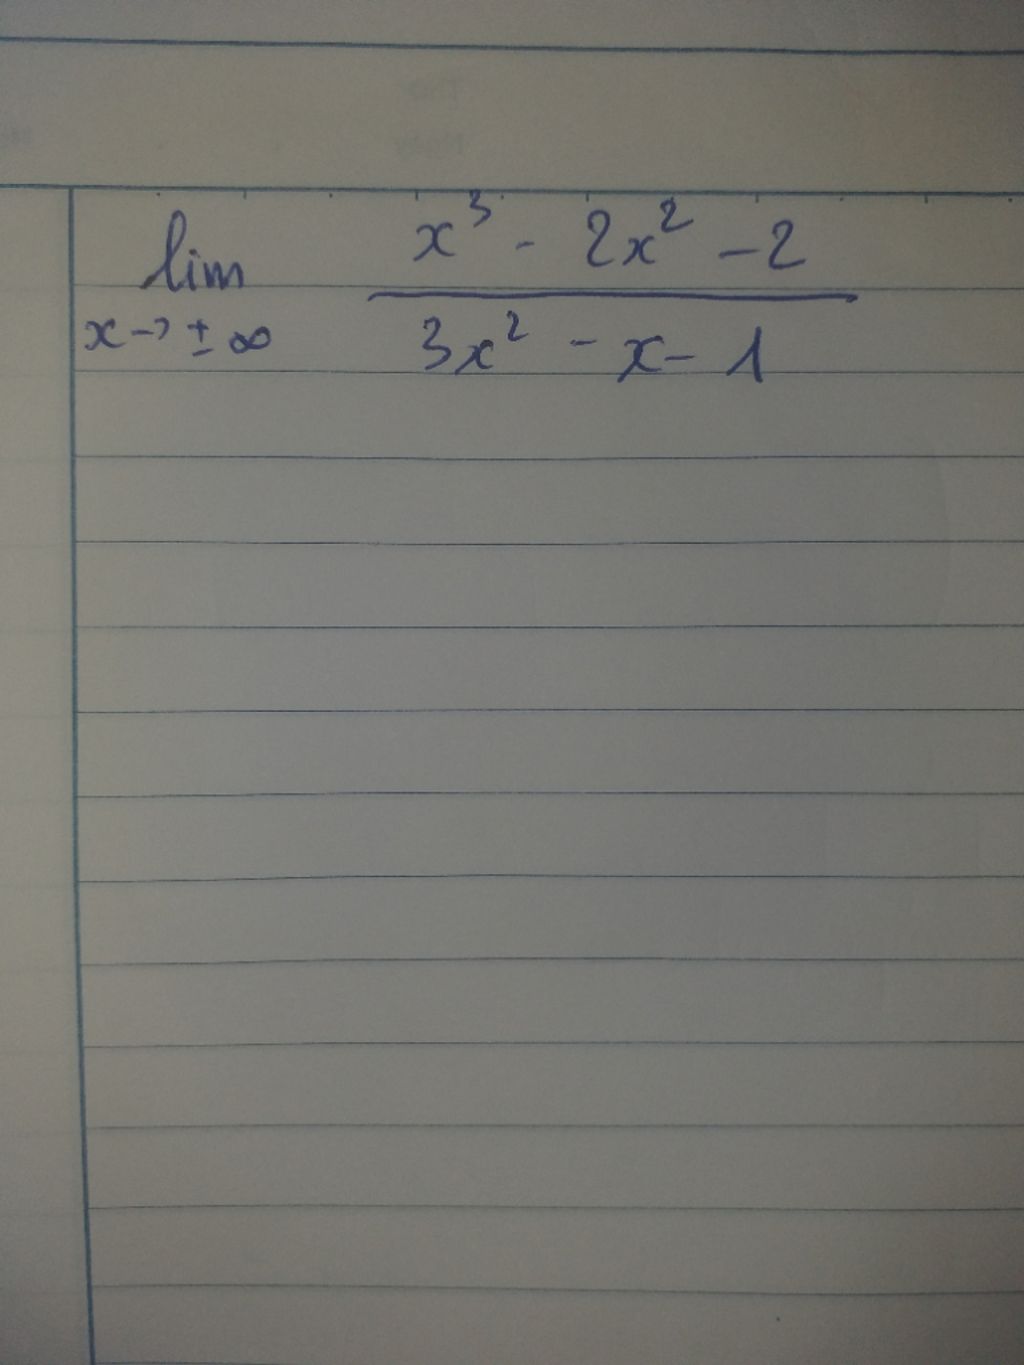 lim x³ - 2x² - 2
x→ ± ∞ 3x² - x - 1